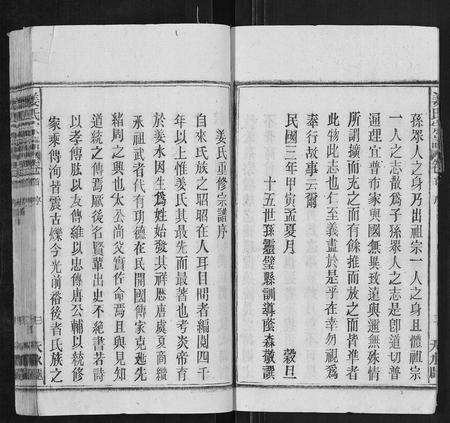 孫眾人之身乃出祖宗一人之身且體祖宗
一人之志散爲子孫眾人之志是卽道切普
濟理宜普布家與國無異致遠與邇無殊情
所謂擴而充之而有餘推而放之而皆準者
此物此志也仁至義盡於是乎在幸勿視爲
奉行故事云爾
民國三年甲寅孟夏月 穀旦
十五世孫靈璧縣訓導蔭森敬譔
姜氏重修宗譜序
自來氏族之昭昭在人耳目間者編閱四千
年以上惟姜氏其最先而最著也考炎帝有
於姜水因生爲姓始發其祥歷唐虞夏商纘
承祖武者代有功德在民開國傳家克迪先
緒周之興也太公尚父實佐命焉且與見知
道統之傳焉厥後名賢輩出史不絕書若詩
以孝傳肱以友傳維以忠傳唐公輔以統修
家乘傳洵昔震古爍今光前裕後者氏族之